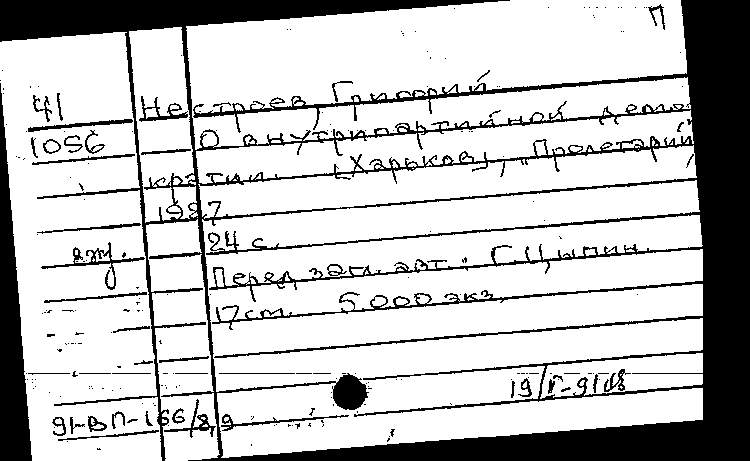 П
Ч1 Нестроев, Григорий
1056 О внутрипартийной демо-
кратии. [Харьков], „Пролетарий"
1927.
2эку. 24 с.
Перед загл. авт.: Г. Цыпин.
17 cm. 5.000 экз.
19/V-91
91-ВП-166/8,9